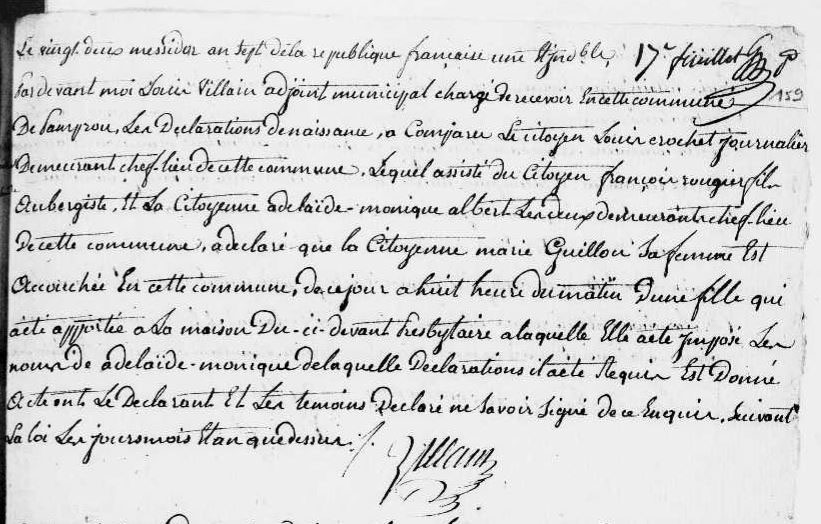 Le vingt deux messidor an sept de la republique francaise une & jnd.ble, 17.e feuillet
159
Pardevant moi Louis Villain adjoint municipal chargé de recevoir En cette commune
De Samprou, Les Declarations de naissance, a Comparu Le citoyen Louis crochet journalier
Demeurant chef-lieu de cette commune, Lequel assisté du Citoyen françois rougier fils
Aubergiste, Et La Citoyenne adelaïde-monique albert Les deux demeurants chef-lieu
De cette commune, a declaré que la Citoyenne marie Guillon Sa femme Est
Accouchée En cette commune, de ce jour a huit heure du matin D'une fille qui
a été apportée a La maison Du-ci-devant Presbytaire a laquelle Elle a été jmposé Les
noms de adelaïde-monique de laquelle Declarations il a été Requis Est Donné
Acte ont Le Declarant Et Les temoins Declaré ne Savoir Signé de ce Enquis, Suivant
La loi Les jours mois Et an que dessus ./.
Villain